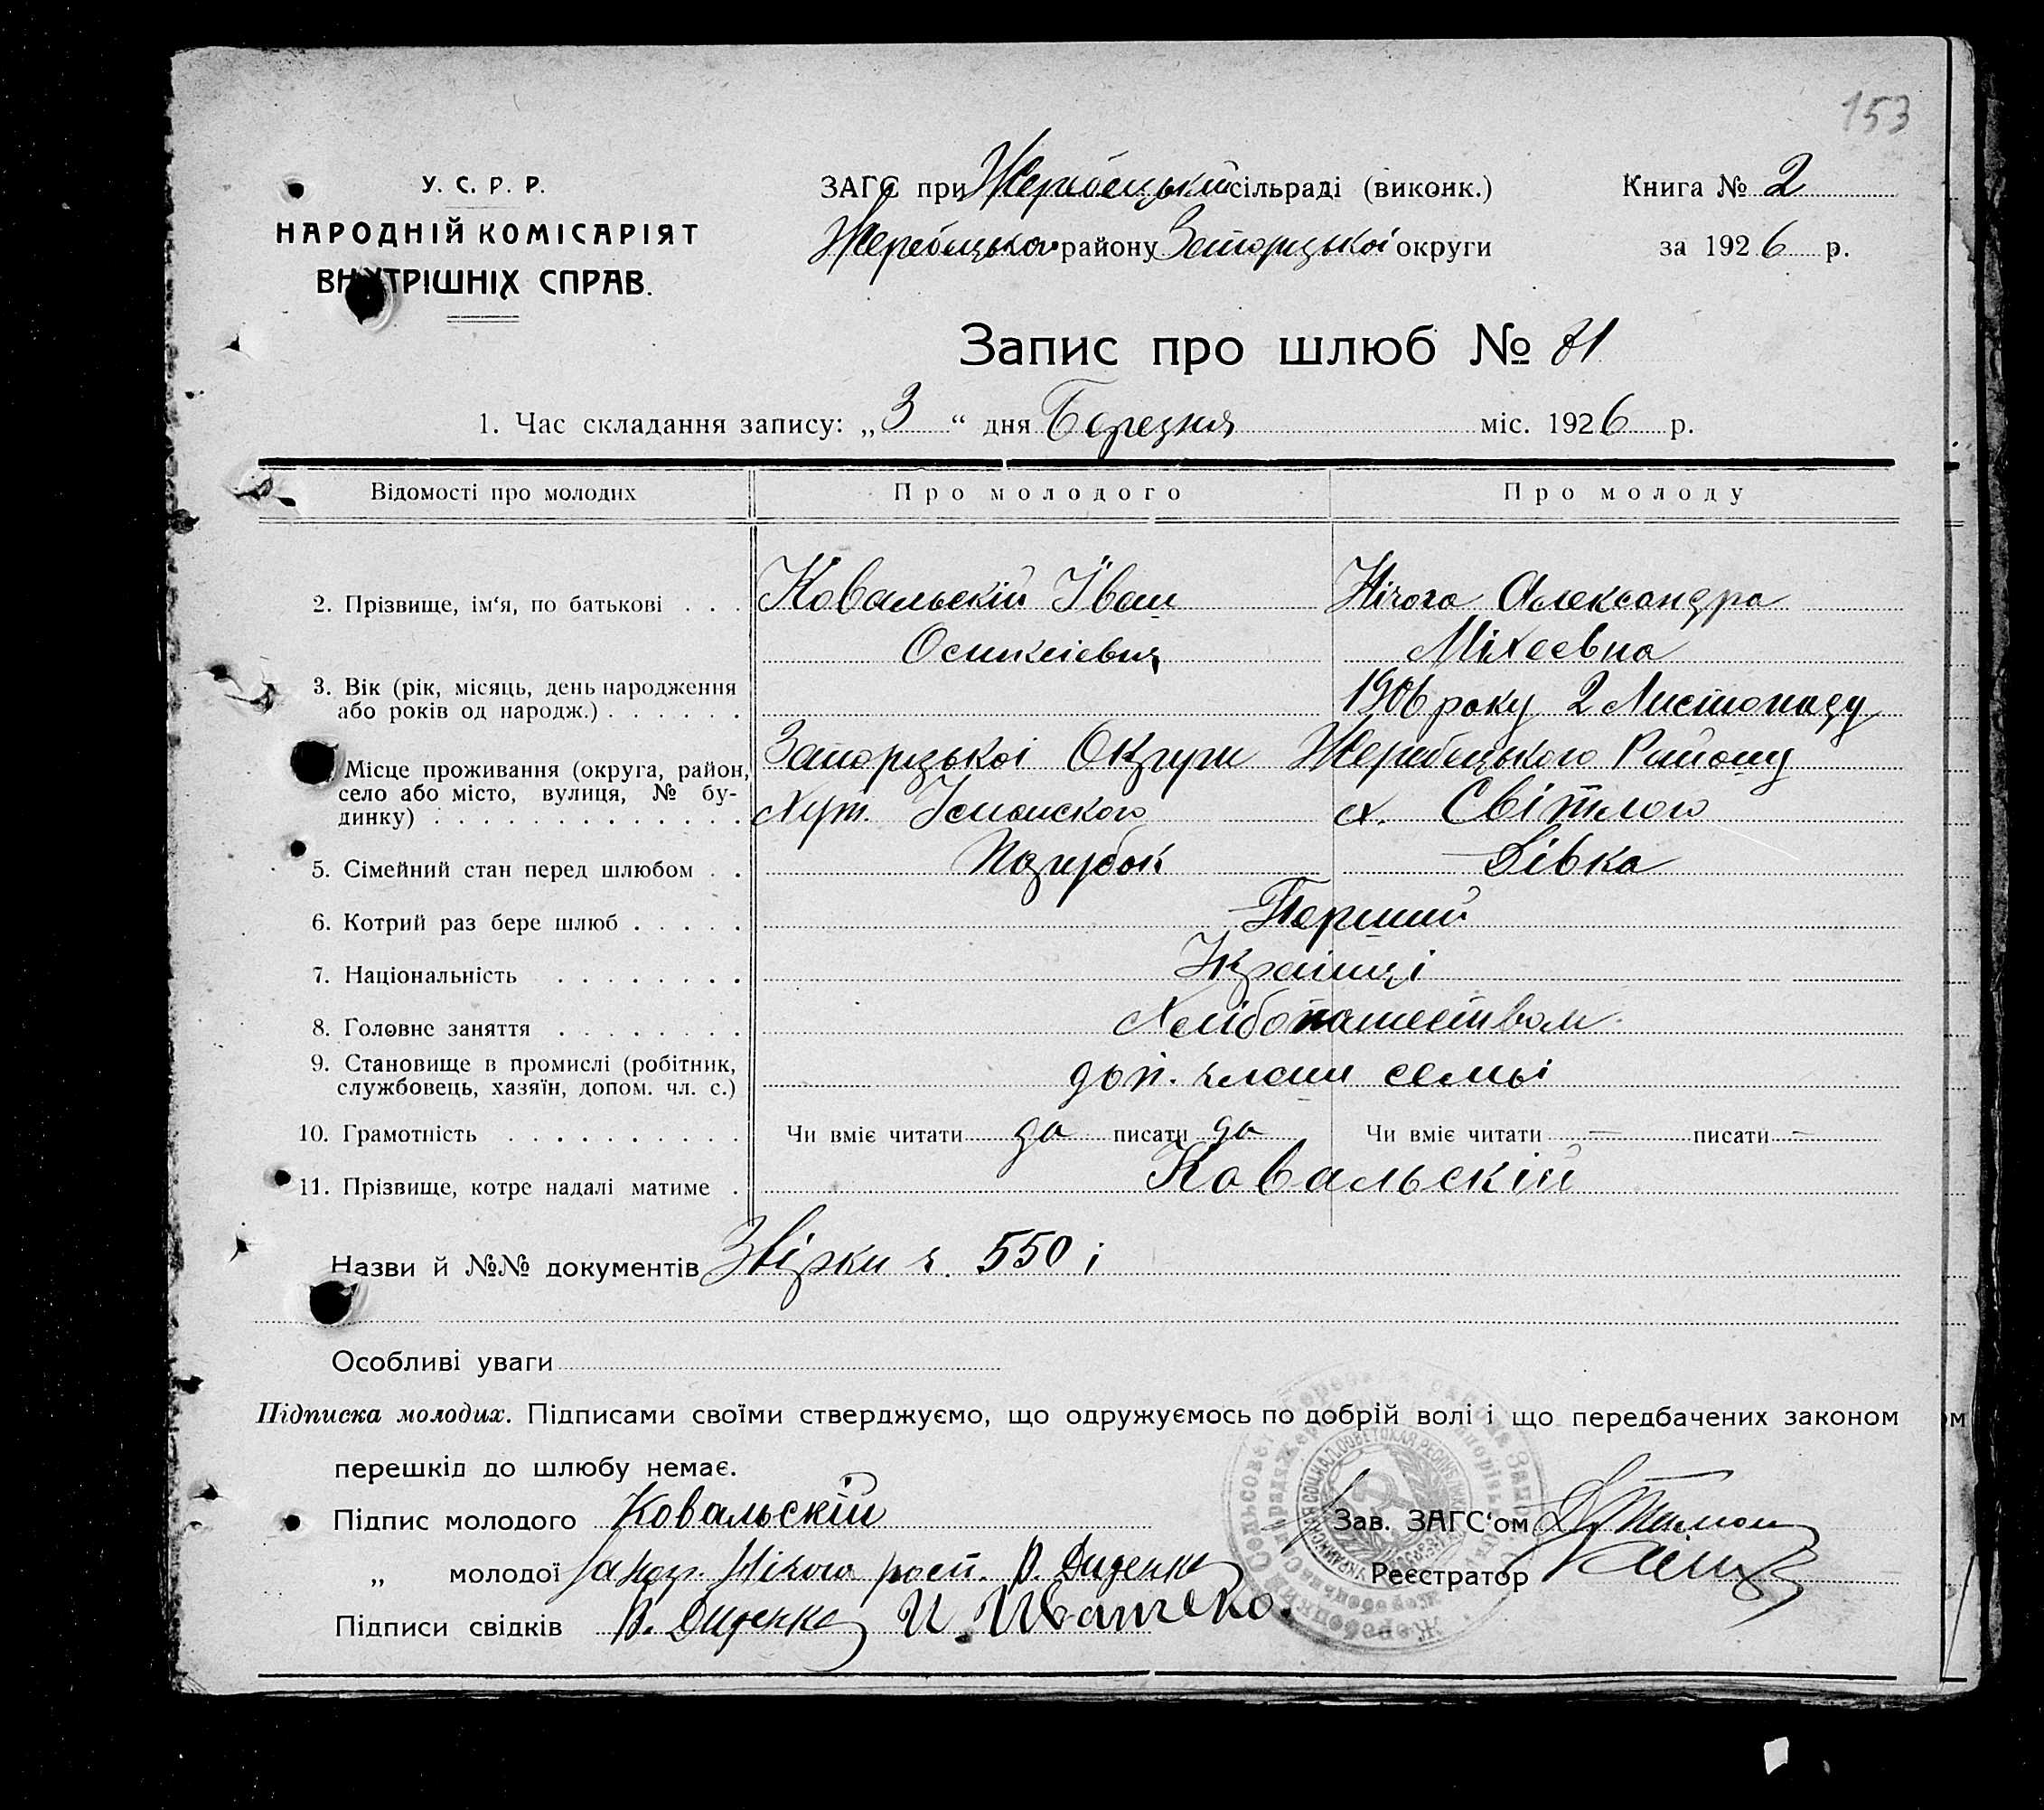 153
У. С. Р. Р.
НАРОДНІЙ КОМІСАРІЯТ
ВНУТРІШНІХ СПРАВ.
ЗАГС при Жеребецькій сільраді (виконк.)
Жеребецького району Запорізької округи
Книга № 2
за 1926 р.
Запис про шлюб №
1. Час складання запису: „3“ дня Березня міс. 1926 р.
Відомості про молодих Про молодого Про молоду
2. Прізвище, ім‘я, по батькові . . . Ковальскій Іван Нічога Александра
Міхеевна
3. Вік (рік, місяць, день народження
або років од народж.) . . . . . . 1906 року 2 Листопаду
Місце проживання (округа, район, Запорізькоі Округи Жеребецького Району
село або місто, вулиця, № бу-
динку) . . . . . . . . . . . . . Хут. х. Світлого
5. Сімейний стан перед шлюбом . . Парубок Дівка
6. Котрий раз бере шлюб . . . . . Перший
7. Національність . . . . . . . . Украінці
8. Головне заняття . . . . . . . . Хлібопашеством
9. Становище в промислі (робітник,
службовець, хазяїн, допом. чл. с.) доп. члени семьі
10. Грамотність . . . . . . . . . . Чи вміє читати да писати да Чи вміє читати — писати —
11. Прізвище, котре надалі матиме . Ковальскій
Назви й №№ документів Звірки ч. 550 і
Особливі уваги
Підписка молодих. Підписами своїми стверджуємо, що одружуємось по добрій волі і що передбачених законом
перешкід до шлюбу немає.
Підпис молодого Ковальскій
Зав. ЗАГС‘ом
„ молодої Нічога росп. В. Диденко
Реєстратор
Підписи свідків В. Диденко И. Иватеко.